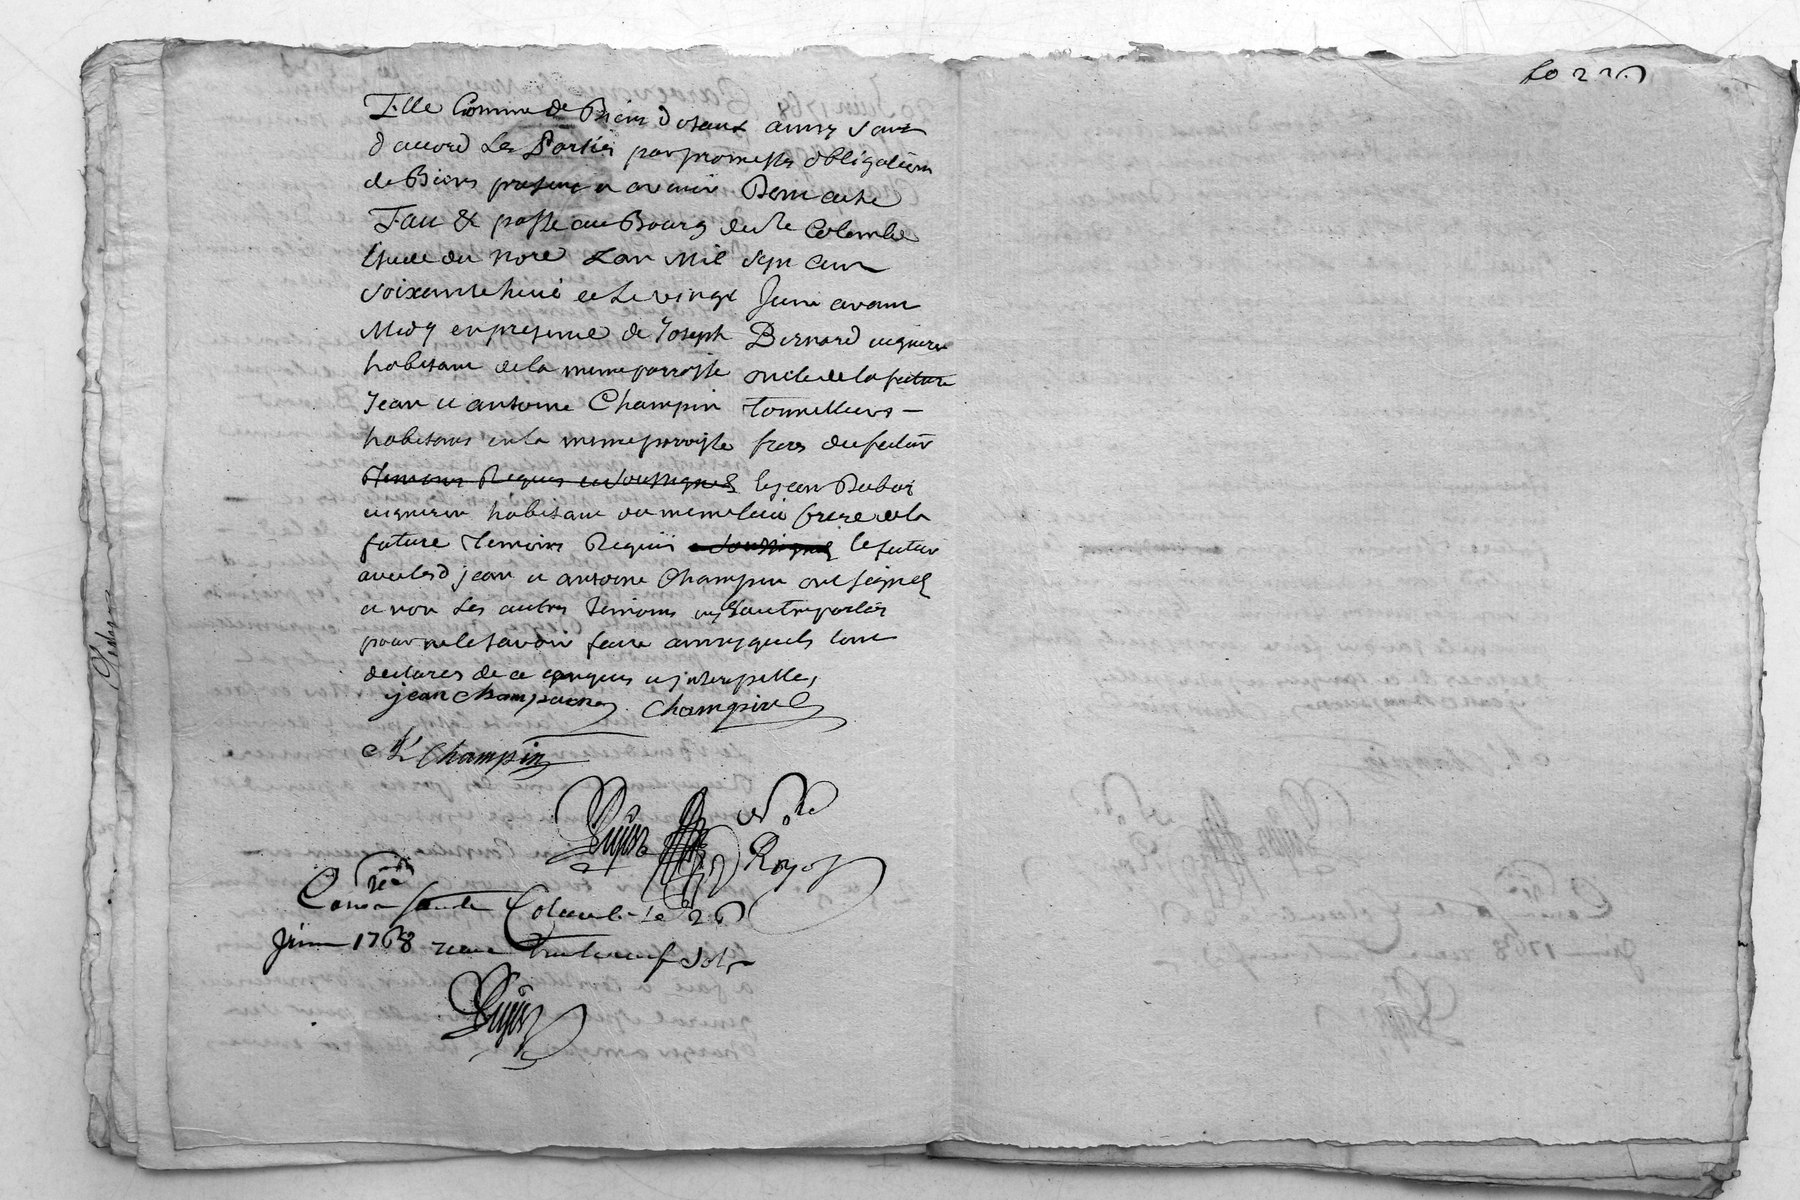 fo 226
Elle Comme de Biens dotaux ainsy sont
d'accord Les Parties par promesses obligations
de Biens present et avenir Dont acte
Fait & passé au Bourg de Ste Colombe
Etude du Nore Lan Mil sept cent
soixante huit et Le vingt Juin avant
Midy en presence de Joseph Bernard vigneron
habitant de la meme parroisse oncle de la future
Jean et antoine Champin Tonnelliers
habitans en la meme parroisse freres du futur
Temoins Requis et soussignes & jean Dubois
vigneron habitant du meme lieu frere de la
future Temoins Requis et soussignes le futur
avec lesd jean et antoine Champin ont signes
et non Les autres Temoins ny Lautre partie
pour ne le savoir faire ainsy quils l'ont
declares de ce enquis et interpellés
jean champin Champin
A Champin
Dujor Nore
Royal
Conle Ste Colombe le 26
Juin 1768 recu sols
Dujor